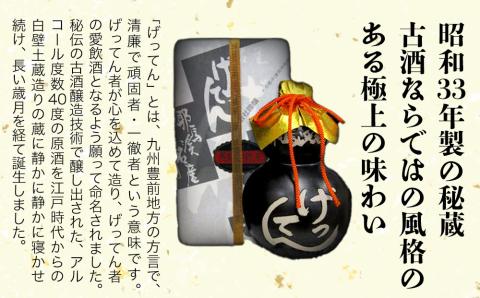 昭和33年製の秘蔵
古酒ならではの風格の
ある極上の味わい
「げってん」とは、九州豊前地方の方言で、
清廉で頑固者・一徹者という意味です。
げってん者が心を込めて造り、げってん者
の愛飲酒となるよう願って命名されました。
秘伝の古酒醸造技術で醸し出された、アル
コール度数40度の原酒を江戸時代からの
白壁土蔵造りの蔵に静かに静かに寝かせ
続け、長い歳月を経て誕生しました。
げってん
げってん